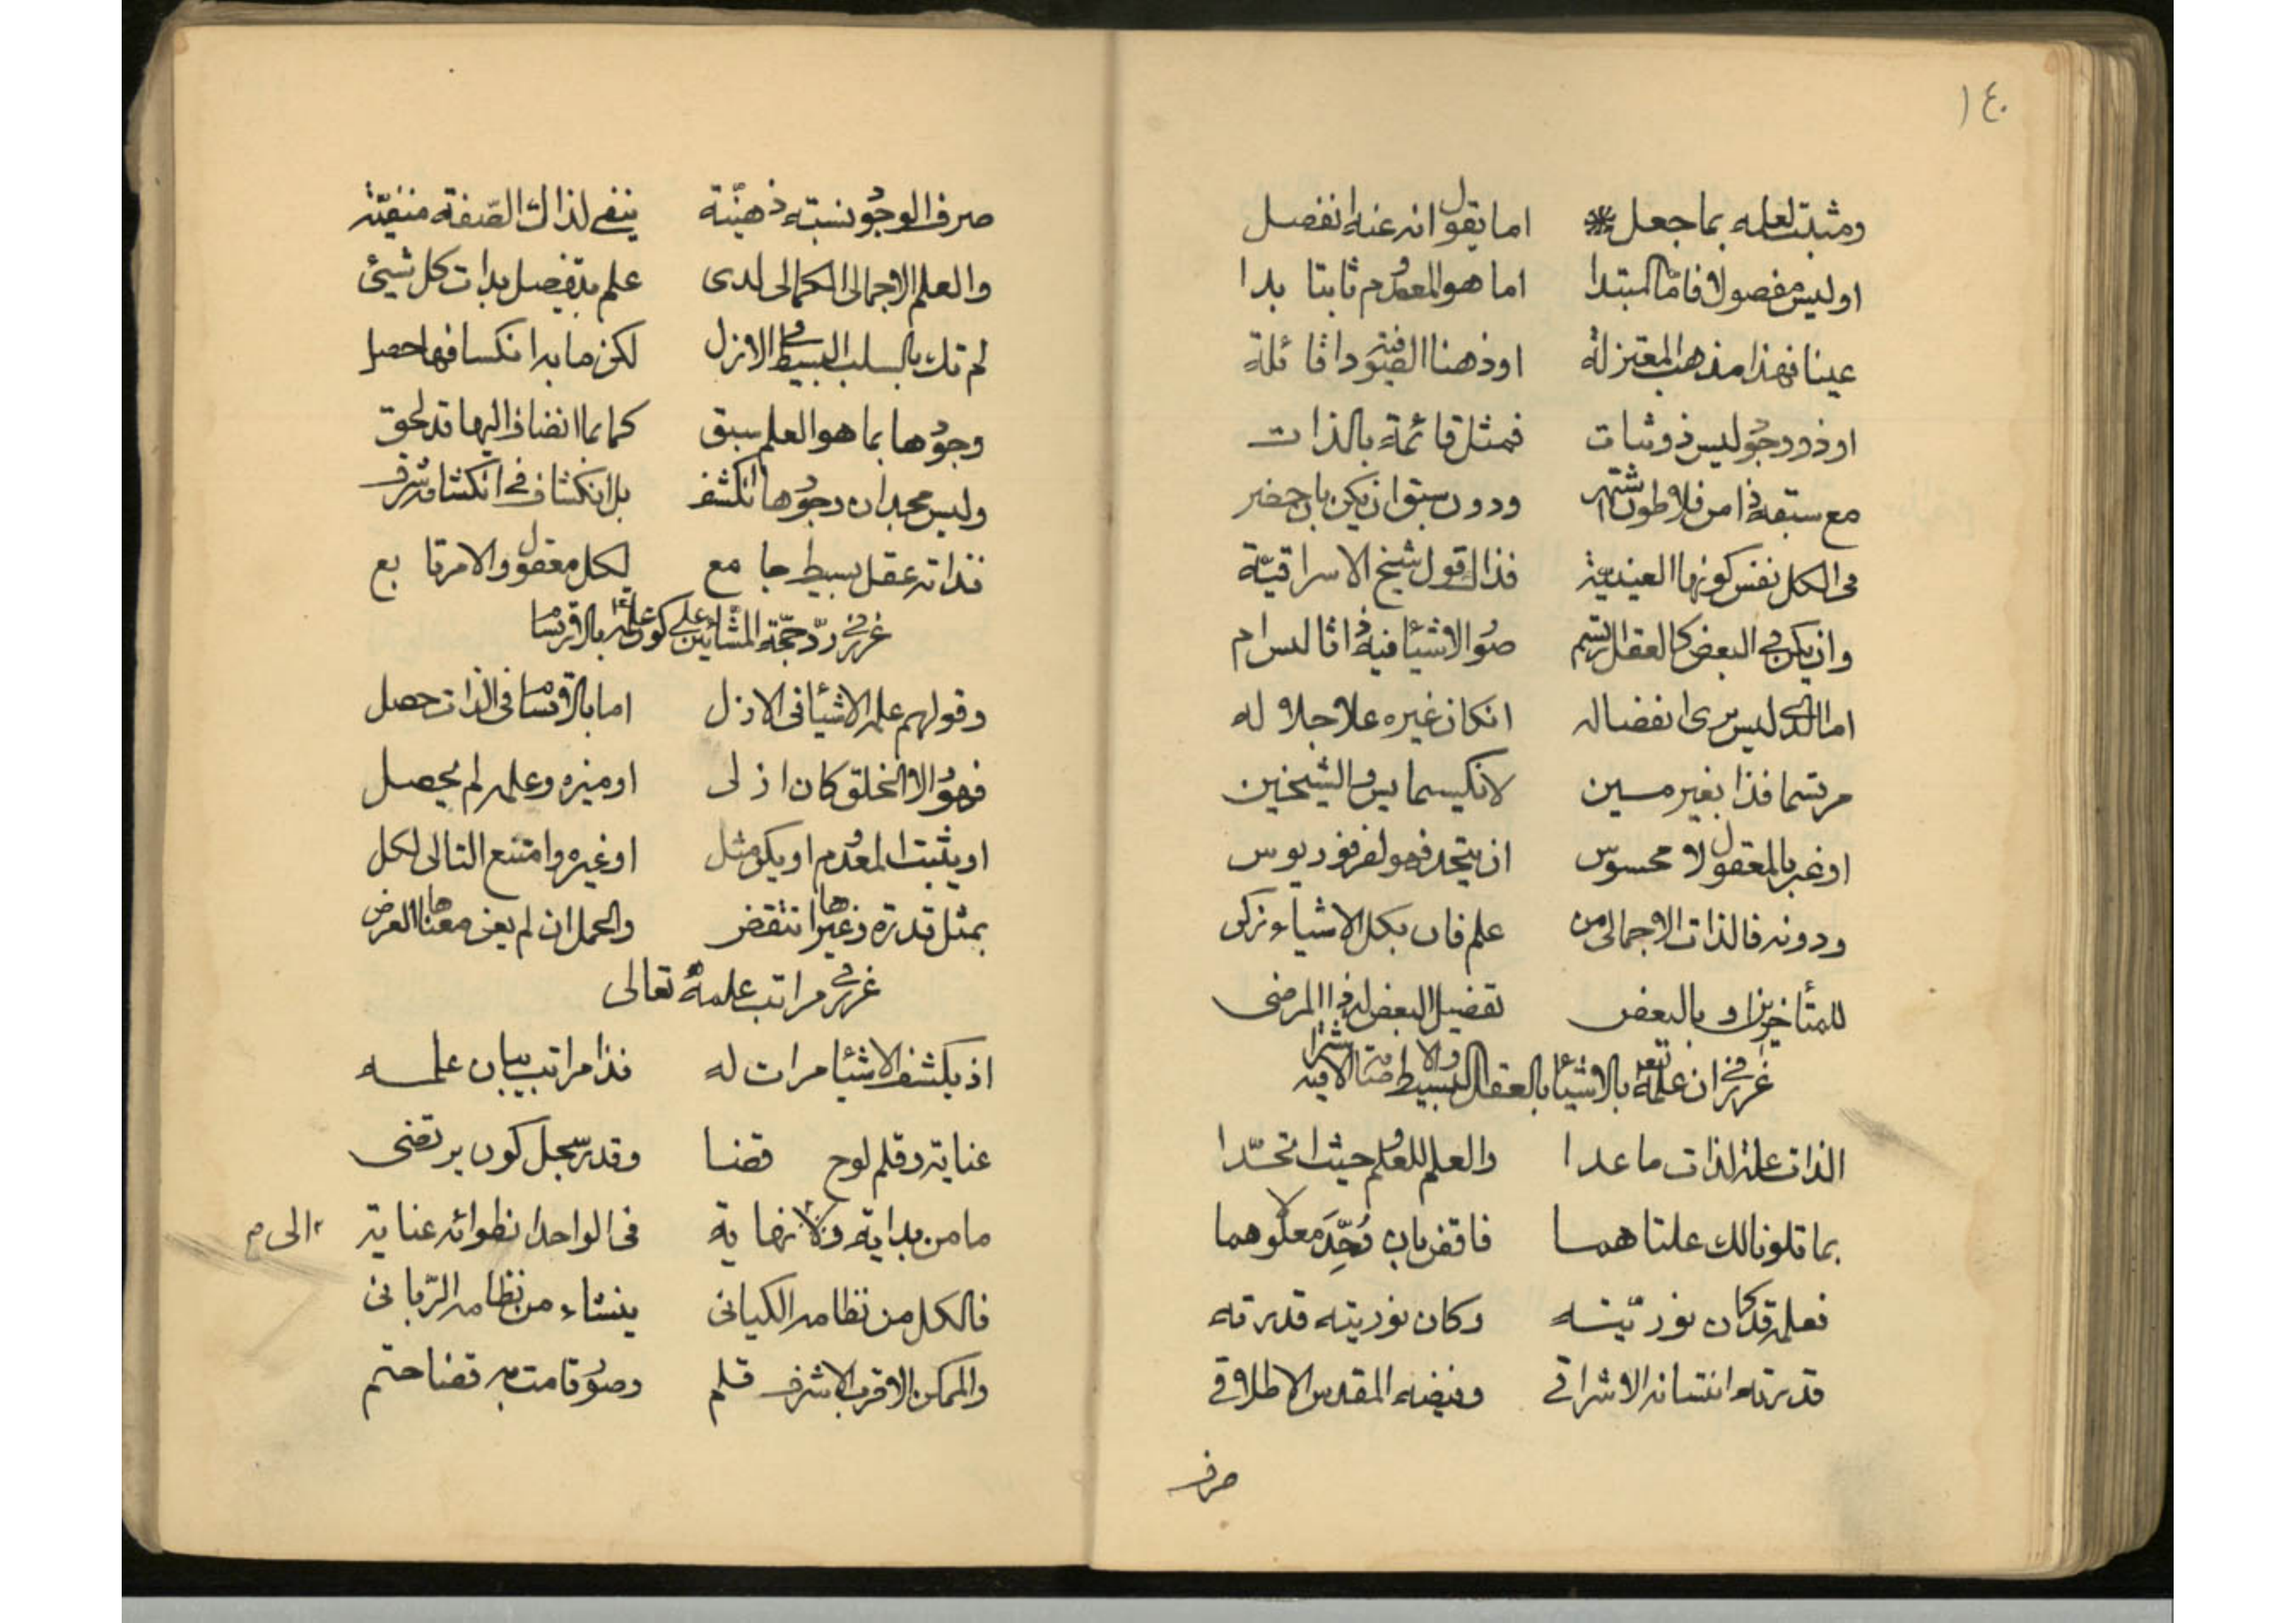 ١٤٠
ومثبت لعلمه بما جعل اما يقول انه عنه انفصل
او ليس مفصولا فاما المبتدا اما هو المعدوم ثابتا بدا
عينا فهذا مذهب المعتزلة او ذهنا الصوفية ذا قائلة
او ذو وجود ليس ذو ثبات فمثل قائمة بالذات
مع سبقه ذا من فلاطون اشتهر ودون سبق ان يكن بان حضر
فى الكل نفس كونها العينية فذاك قول شيخ الاسراقية
وان يكن فى البعض كالعقل ارتسم صور الاشياء فيه ذا ثاليس ام
اما الذى ليس يرى انفصاله ان كان غيره علا جلاله
مرتسما فذا بغير مين لانكسيمايس والشيخين
او غير بالمعقول لا محسوس ان يتحد فهو لفرفوريوس
ودونه فالذات الاجمالى من علم فان بكل الاشياء زكن
للمتأخرين او بالبعض تفصيل البعض لهذا المرضى
غرر فى ان علمه تعالى بالاشياء بالعقل البسيط والاضافة الاشراقية
الذات علة لذات ما عدا والعلم للمعلوم حيث اتحدا
بما قلونا لك علتاهما فاقض بان وحد معلولاهما
فعلمه قد كان نوريته وكان نوريته قدرته
قدرته انتسابه الاشراقى وفيضه المقدس الاطلاقى
صرف
صرف الوجود نسبته ذهنية ينفى لذاك الصفة منفية
والعلم الاجمالى الكمالى لدى علم بتفصيل بذات كل شيئ
لم تك بالسلب البسيط فى الازل لكن ما به انكسافها حصل
وجودها بما هو العلم سبق كما بما انضاف اليها قد لحق
وليس مجد ان وجودها انكشف بل انكشاف فى انكشافه شرف
فذاته عقل بسيط جامع لكل معقول والامر تابع
غرر فى رد حجة المشائين على كون علمه بالارتسام
وقولهم علم الاشياء فى الازل اما بالارتسام فى الذات حصل
فهو والا الخلق كان ازلى او ميزه وعلمه لم يحصل
او يثبت المعدوم او يكون مثل او غيره وامتنع التالى لكل
بمثل قدرة وغيرها انتقض والحمل ان لم يعن معناها العرض
غرر فى مراتب علمه تعالى
اذ يكشف الاشياء مرات له فذا مراتب بيان علمه
عناية وقلم لوح قضا وقدر سجل كون يرتضى
ما من بداية ولا نهاية فى الواحد انطوائه عناية
الى م
فالكل من نظامه الكيانى ينشاء من نظامه الربانى
والممكن الاقرب الاشرف قلم وصور قامت به قضا حتم